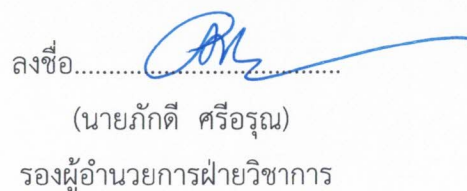 ลงชื่อ....................................
(นายภักดี ศรีอรุณ)
รองผู้อำนวยการฝ่ายวิชาการ